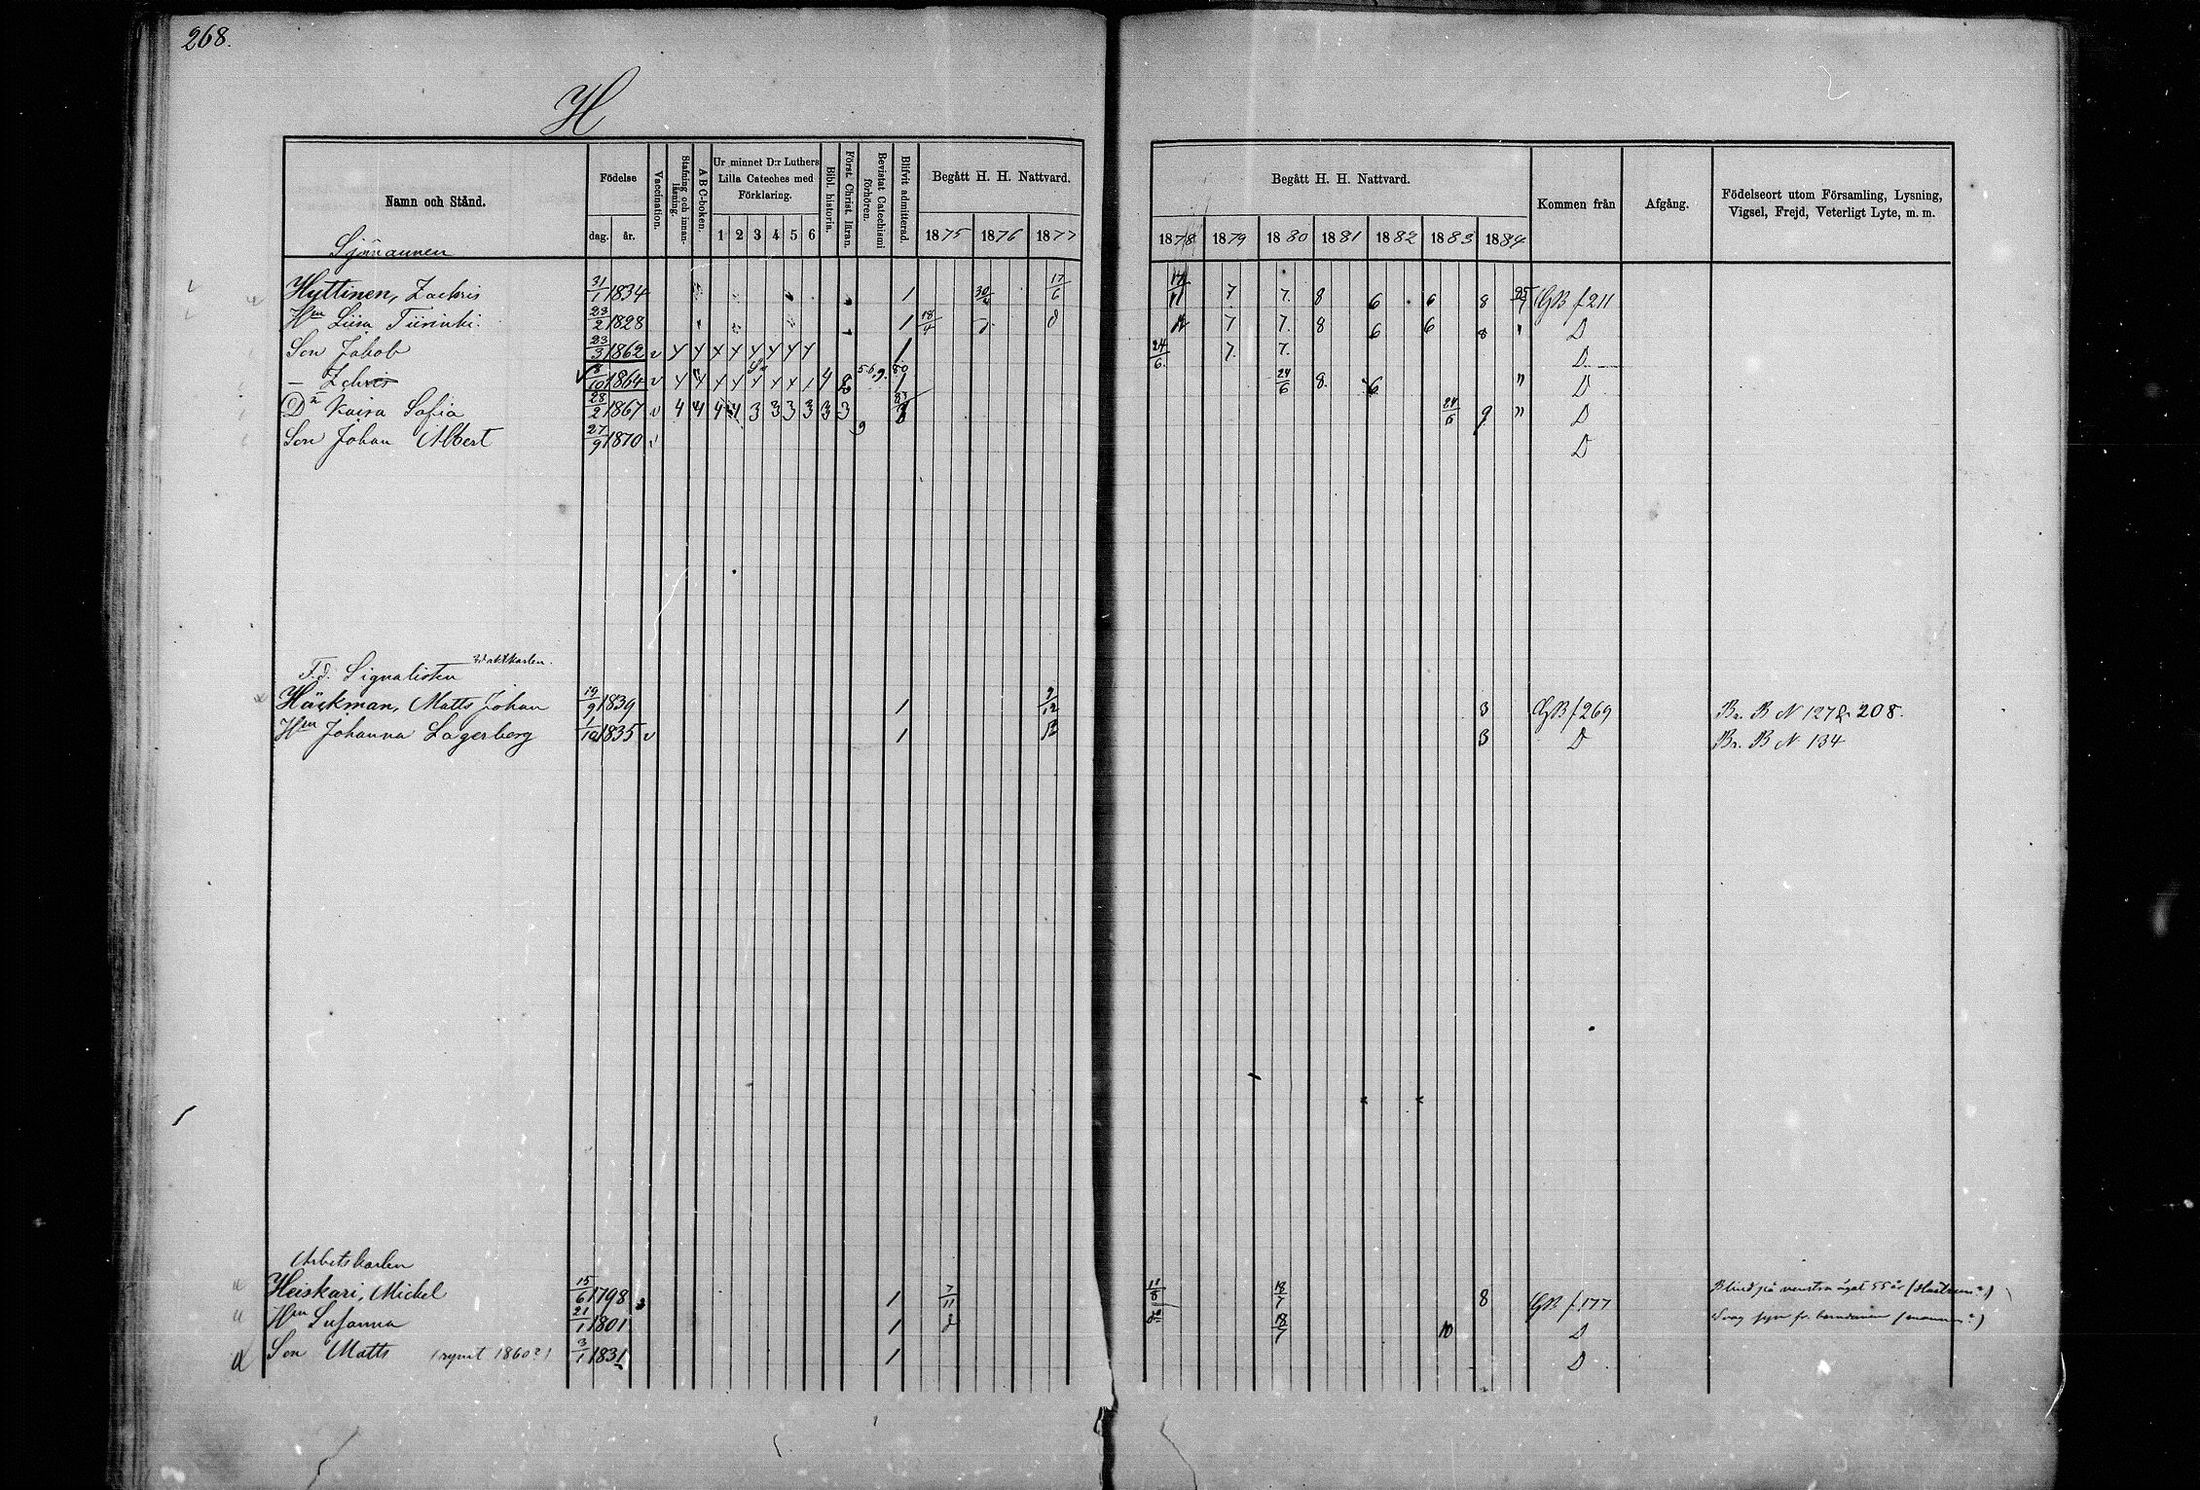 268.
H
Namn och Stånd.
Födelse
dag. år.
Vaccination.
Stafning och innanläsning.
A B C-boken.
Ur minnet D:r Luthers Lilla Cateches med Förklaring.
1 2 3 4 5 6
Bibl. historia.
Först. Christ. läran.
Bevistat Catechismi förhören.
Blifvit admitterad.
Begått H. H. Nattvard.
1875 1876 1877
Begått H. H. Nattvard.
1878 1879 1880 1881 1882 1883 1884
Kommen från
Afgång.
Födelseort utom Församling, Lysning, Vigsel, Frejd, Veterligt Lyte, m. m.
Sjömannen
Hyttinen, Zachris 31/1 1834 1 17/6 7 7. 8 6 6 8 GB f 211
Hm Liisa 23/2 1828 1 18/4 7 7. 8 6 6 8 " D
Son Jakob 23/3 1862 v 1 24/6. 7. 7. D
— Zchris 8/10 1864 v 1 24/6 8. 6 " D
Dr Kaisa Sofia 28/2 1867 v 4 4 4 4 3 3 3 3 3 3 9 " D
Son Johan Albert 27/9 1870 v 9 D
F.d. Signalisten
Häckman, Matts Johan 19/9 1839 1 9/12 3 GB f 269 Br. B N 127 & 208.
Hm Johanna Lagerberg 1/10 1835 v 1 3 D Br. B N 134
Arbetskarlen
Heiskari, Michel 15/6 1798 1 7/11 11/8 18/7 8 GB f 177 Blind på venstra ögat 55 år
Hm Susanna 21/1 1801 1 18/7 10 D
Son Matts (rymt 1860?) 3/1 1831 1 D